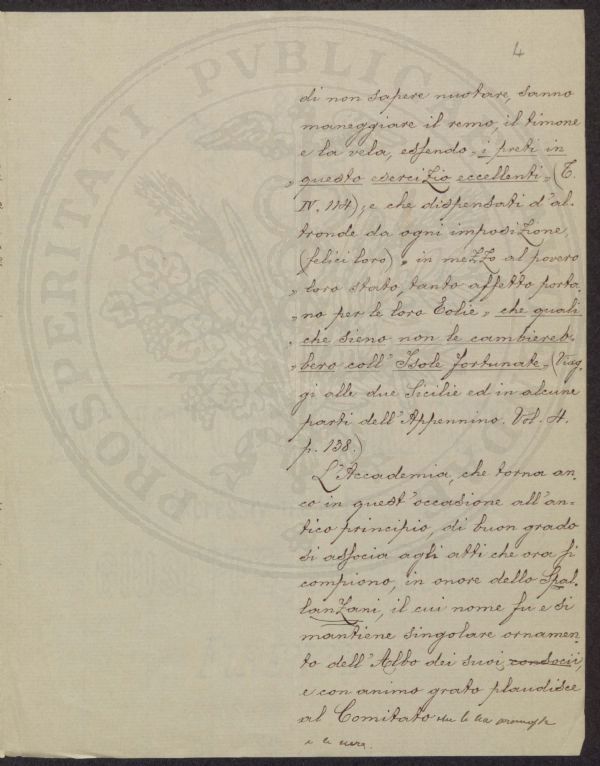 4
di non sapere nuotare, sanno
maneggiare il remo, il timone
e la vela, essendo „ i preti in
„ questo esercizio eccellenti „ (T.
IV. 114), e che dispensati d'al-
tronde da ogni imposizione,
(felici loro) „ in mezzo al povero
„ loro stato, tanto affetto porta-
„ no per le loro Eolie „ che quali
„ che sieno non le cambiereb-
„ bero coll' Isole fortunate „ (Viag-
gi alle due Sicilie ed in alcune
parti dell' Appennino. Vol. 4.
p. 138.)
L'Accademia, che torna an-
co in quest' occasione all' an-
tico principio, di buon grado
si associa agli atti che ora si
compiono, in onore dello Spal-
lanzani, il cui nome fu e si
mantiene singolare ornamen-
to dell' Albo dei suoi consocii,
e con animo grato plaudisce
al Comitato che li ha
PROSPERITATI PVBLICAE